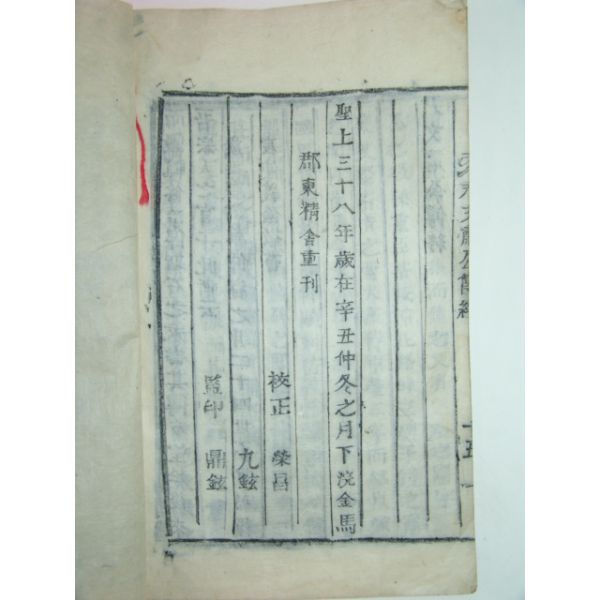 聖上三十八年歲在辛丑仲冬之月下浣金馬
郡東精舍重刊
校正 榮昌
九鉉
監印 鼎鉉